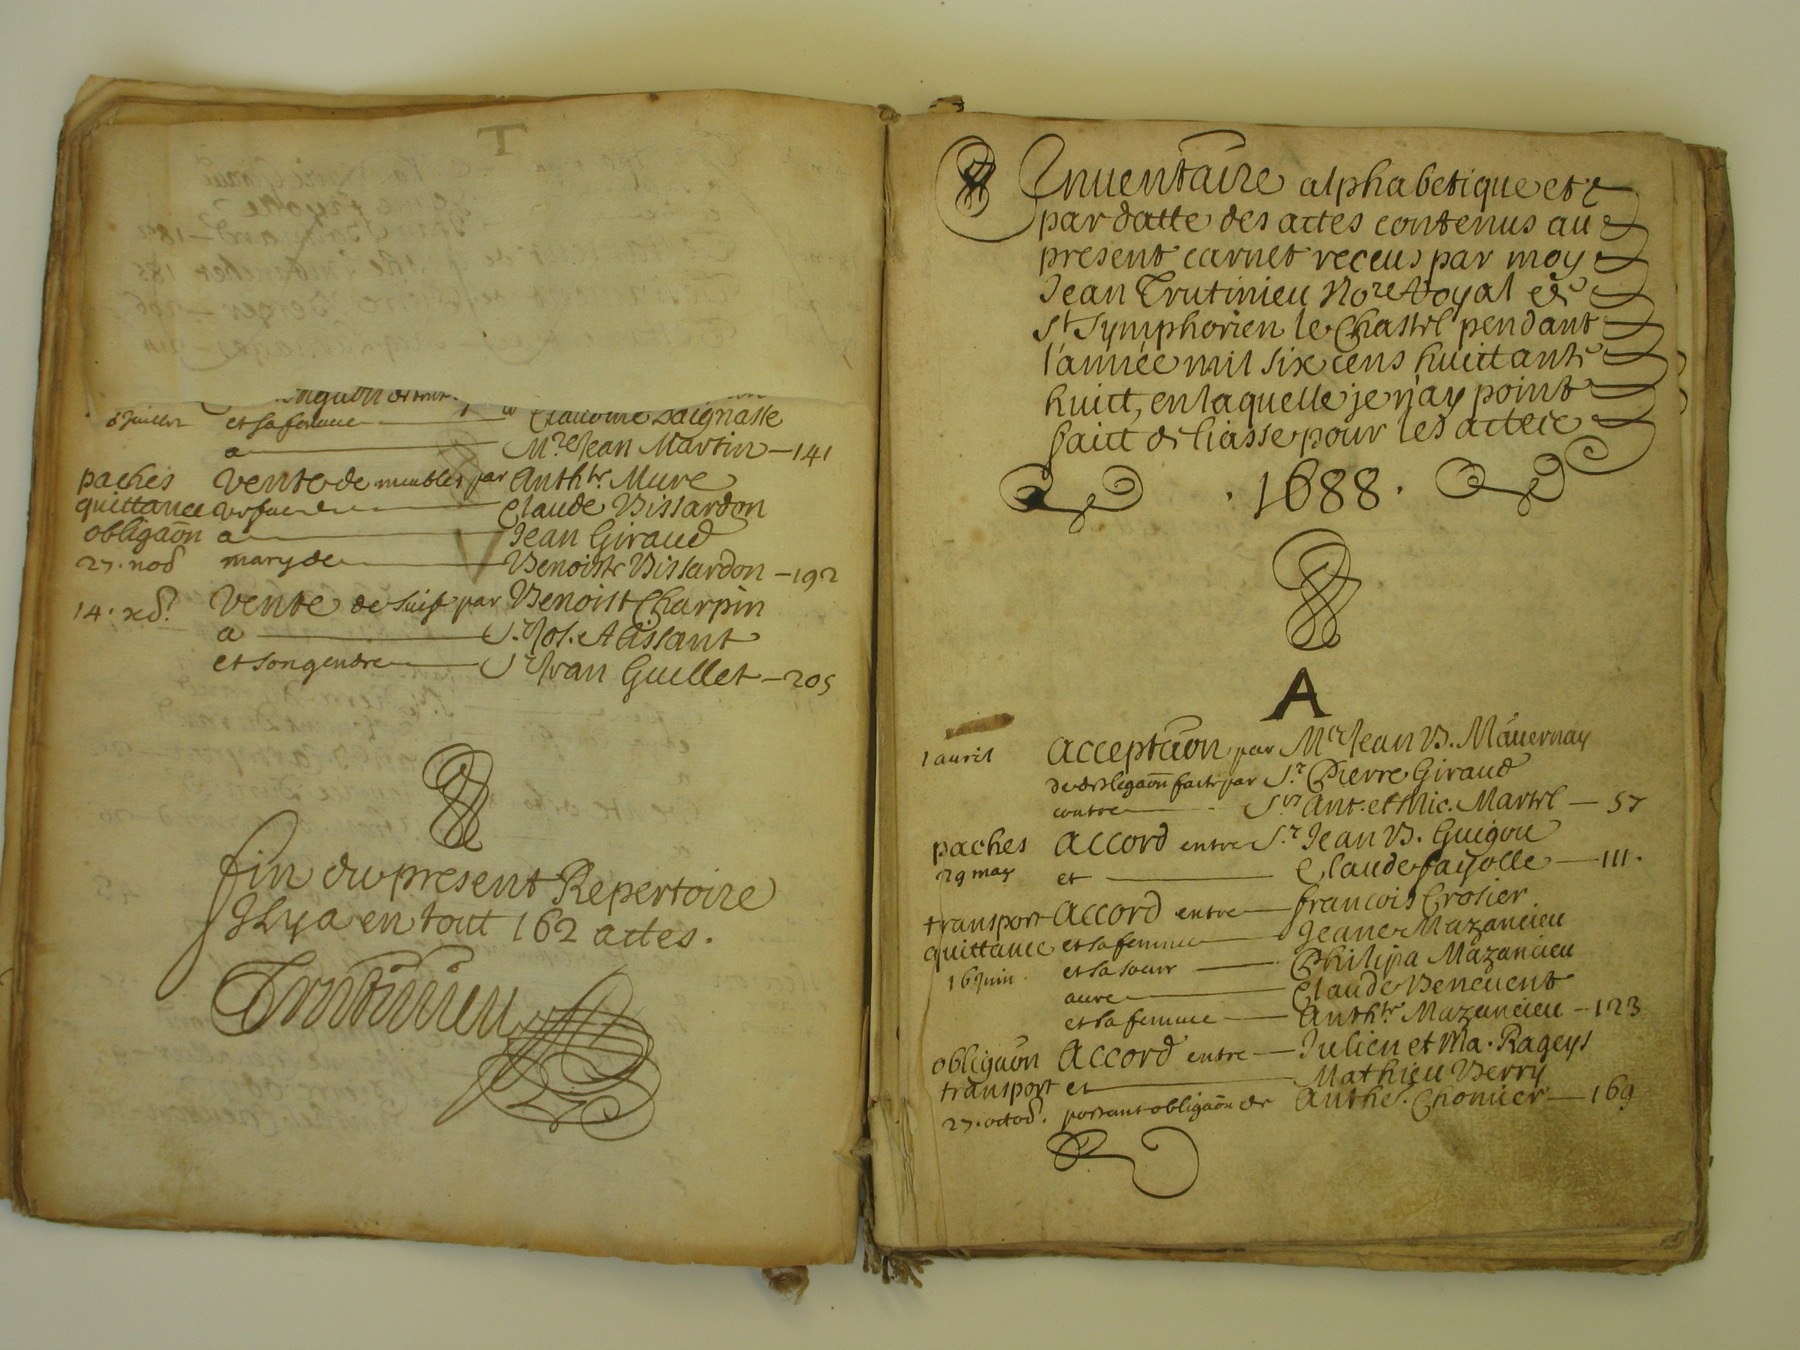 6 Juillet et sa femme Claudine Saignasse
a Mre Jean Martin — 141
paches Vente de meubles par Anthre Mure
quittance Claude Bissardon
obligaôn a Jean Giraud
27. nob mary de Benoiste Bissardon — 192
14. xb. Vente de suif par Benoist Charpin
a Sr. Jos. Alissant
et son gendre Sr Jvan Guillet — 205
fin du present Repertoire
Il y a en tout 162 actes.
Trutinieu
Inuentaire alphabetique et
par datte des actes contenus au
present carnet receus par moy
Jean Trutinieu Nore Royal de
St Symphorien le Chastel pendant
l'année mil six cens huictante
huict, en laquelle je n'ay point
faict de liasse pour les actes
. 1688 .
A
1 auril Acceptâon par Mre Jean B. Mauernay
de obligaôn faite par Sr. Pierre Giraud
contre Srs Ant. et Mic. Martel — 57
paches Accord entre Sr. Jean B. Guigou
29 may et Claude fayolle — 111.
transport Accord entre francois Crosier
quittance et sa femme Jeane Mazancieu
16 Juin. et sa soeur Philipa Mazancieu
Claude Beneuent
et sa femme Anthre Mazancieu — 123
obligaôn Accord entre Julien et Ma. Rageys
transport et Mathieu Berry
27. octob. portant obligaôn de Anthe. Chomier — 169